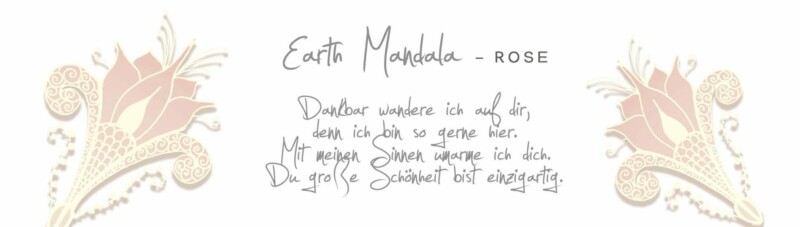 Earth Mandala – ROSE
Dankbar wandere ich auf dir,
denn ich bin so gerne hier.
Mit meinen Sinnen umarme ich dich.
Du große Schönheit bist einzigartig.